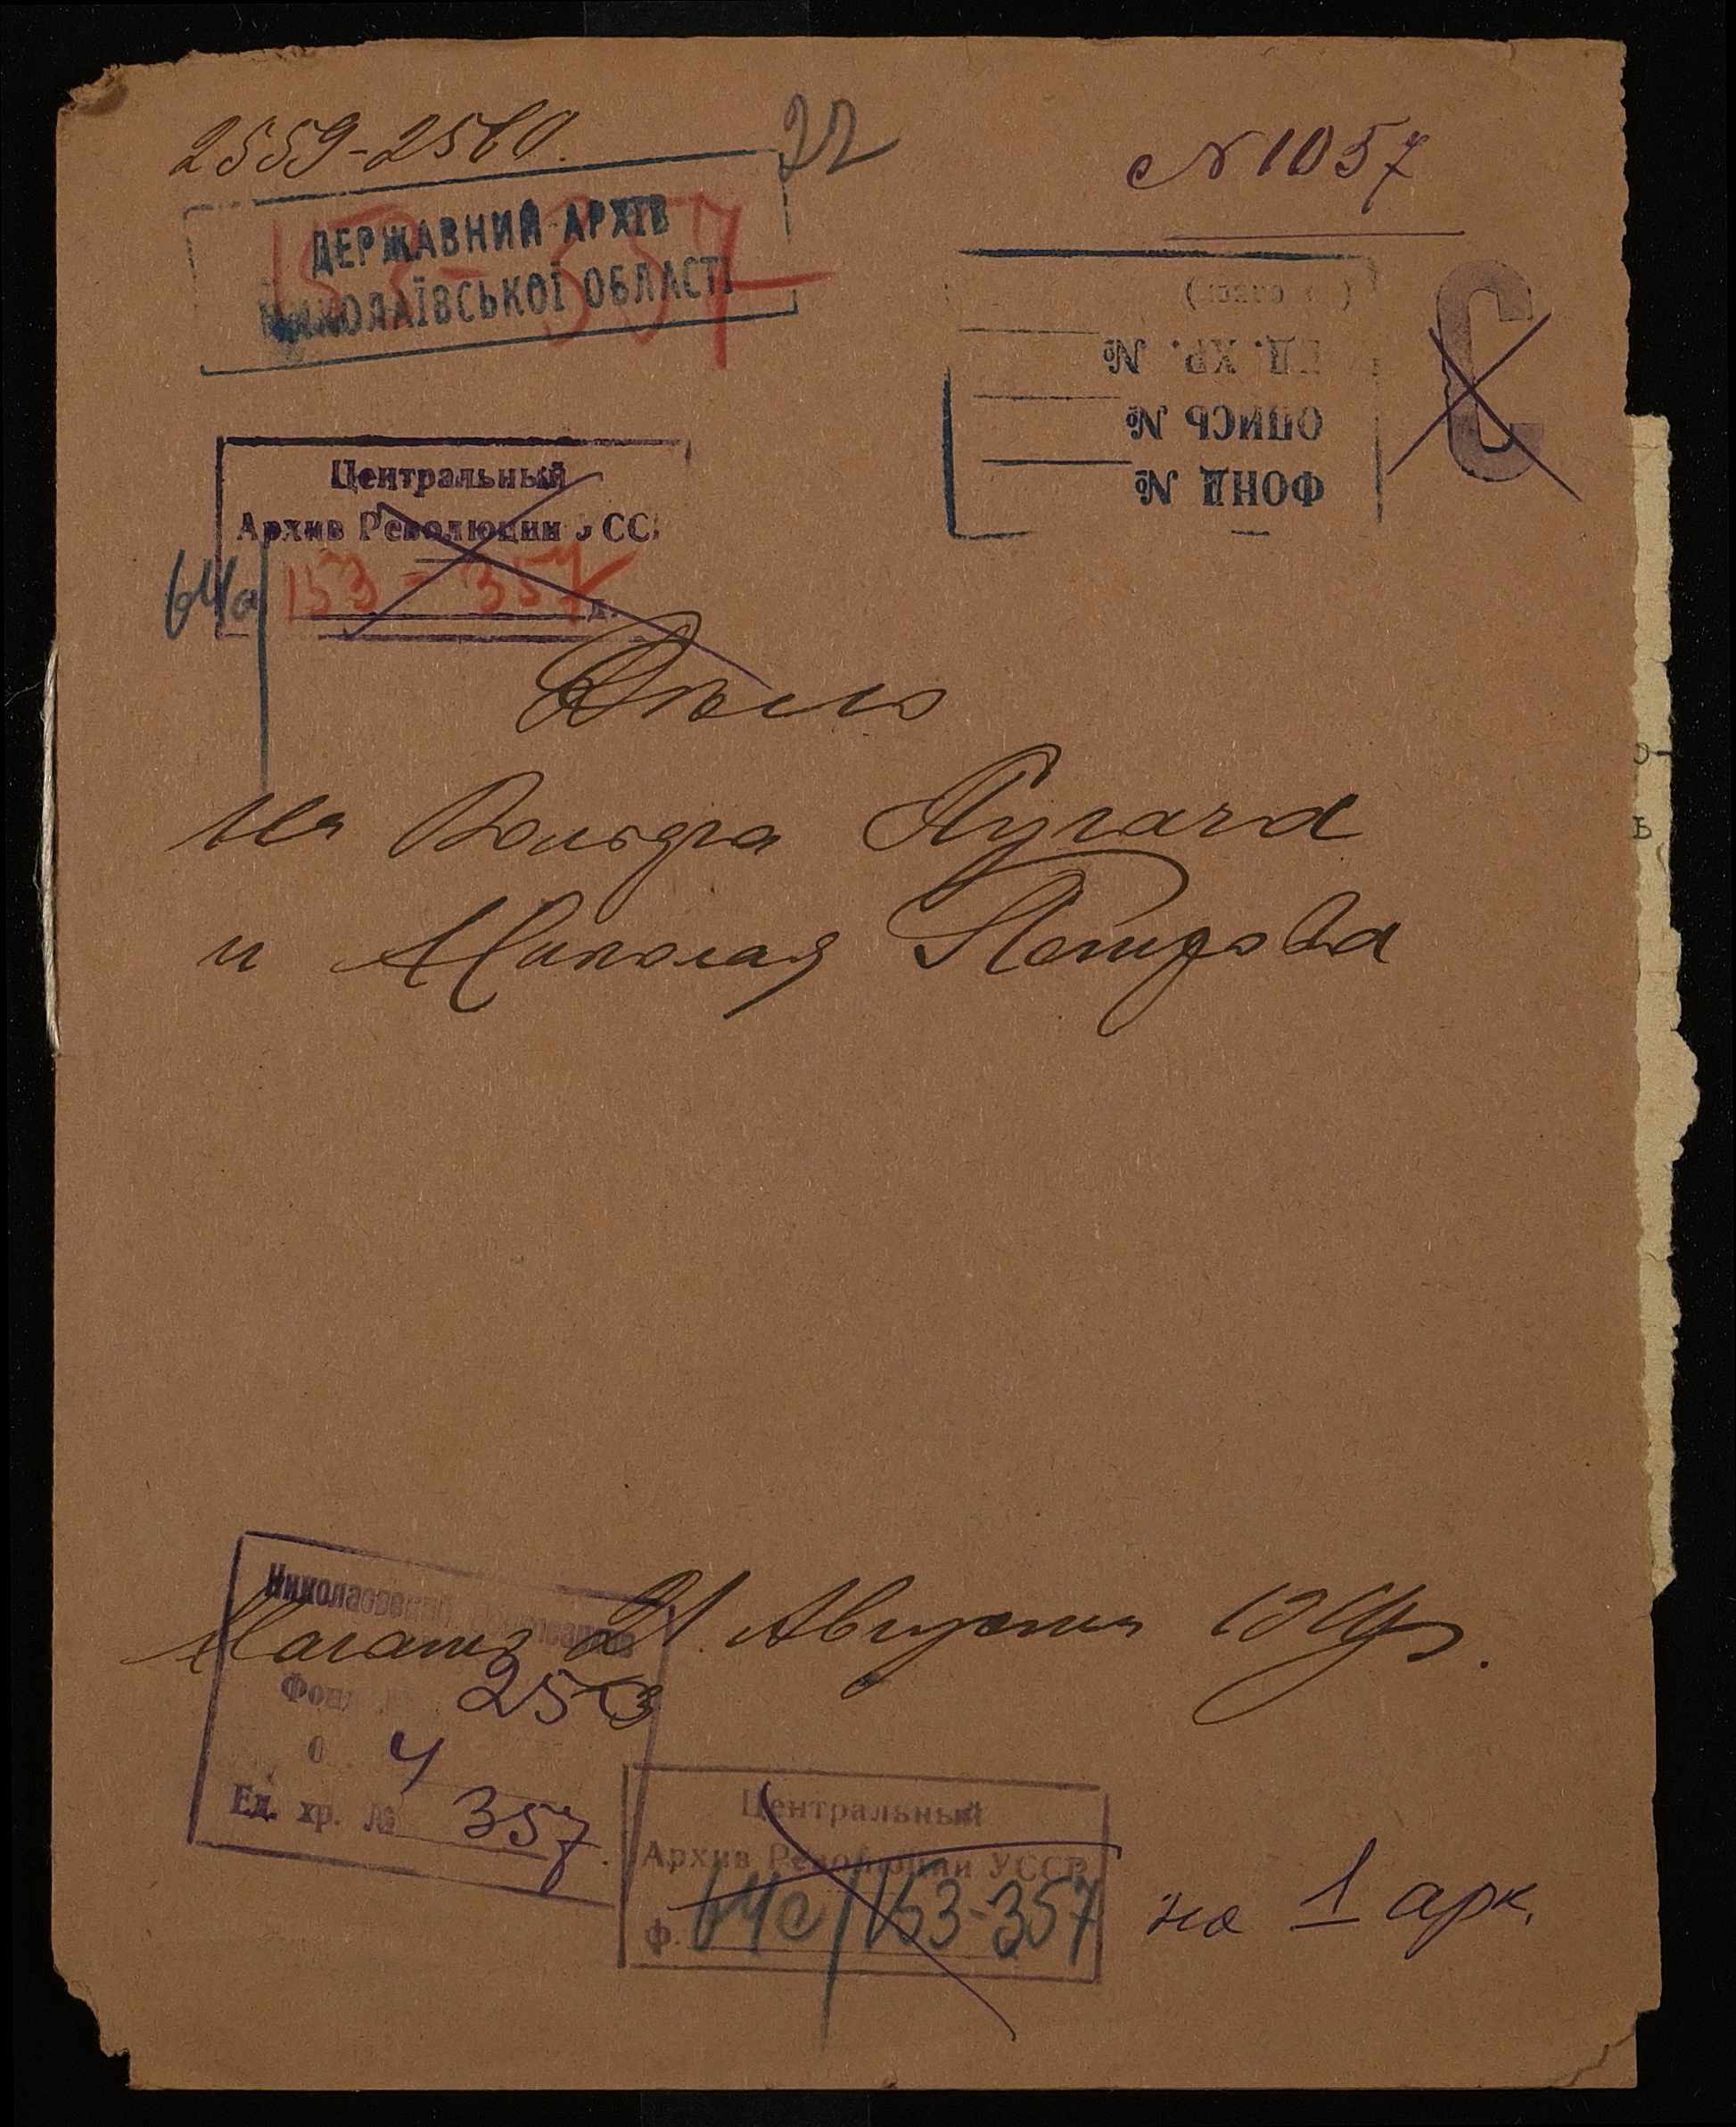 2559-2560.
22
№ 1057
153-357
ДЕРЖАВНИЙ АРХІВ
МИКОЛАЇВСЬКОЇ ОБЛАСТІ
ФОНД №
ОПИСЬ №
ЕД. ХР. №
Центральный
Архив Революции УССР
64а/153-357
Дѣло
на Вольдра Пугача
и Николая Петрова
Начато 21 Августа 19
Николаевский
Фонд № 253
о 4
Ед. хр. № 357.
Центральный
Архив Революции УССР
ф. 64с/153-357
на 1 арк.